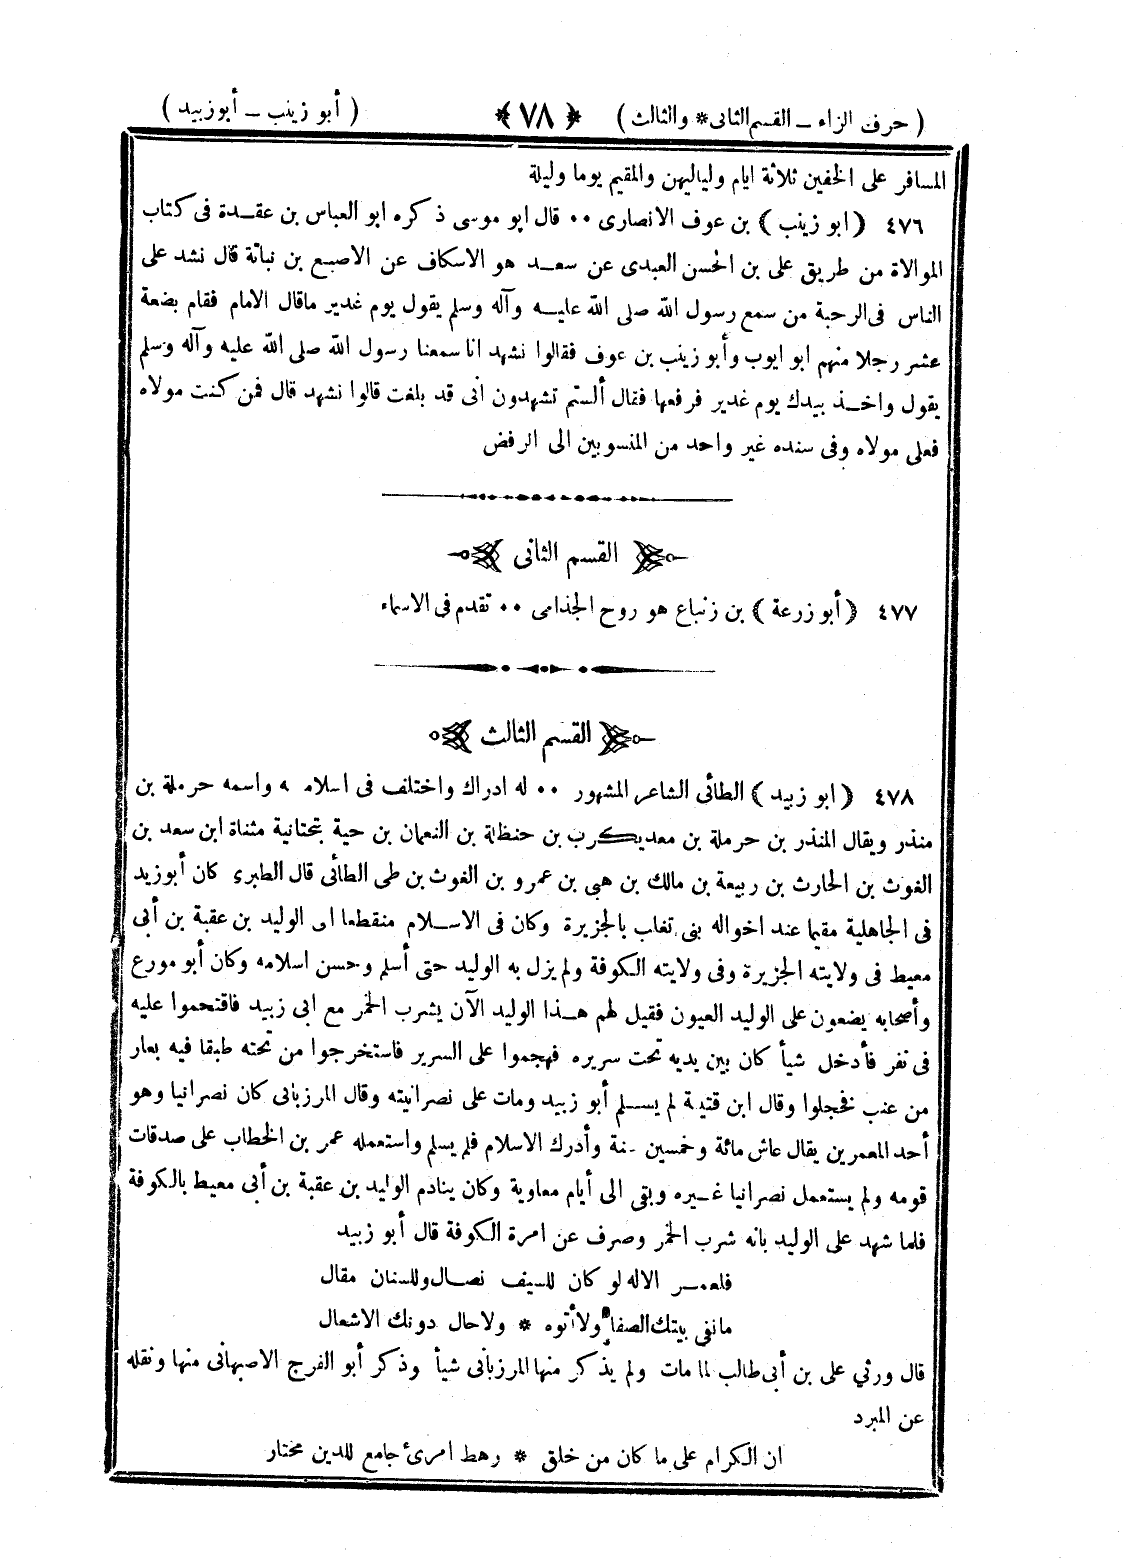 ( حرف الزاء ــ القسم الثانى * والثالث ) ﴿ ٧٨ ﴾ ( أبو زينب ــ أبو زبيد )
المسافر على الخفين ثلاثة ايام ولياليهن والمقيم يوما وليلة
٤٧٦ ﴿ ابو زينب ﴾ بن عوف الانصارى ٠٠ قال ابو موسى ذكره ابو العباس بن عقدة فى كتاب
الموالاة من طريق على بن الحسن العبدى عن سعد هو الاسكاف عن الاصبع بن نباتة قال نشد على
الناس فى الرحبة من سمع رسول الله صلى الله عليه وآله وسلم يقول يوم غدير ماقال الامام فقام بضعة
عشر رجلا منهم ابو ايوب وأبو زينب بن عوف فقالوا نشهد انا سمعنا رسول الله صلى الله عليه وآله وسلم
يقول واخذ بيدك يوم غدير فرفعها فقال ألستم تشهدون أنى قد بلغت قالوا نشهد قال فمن كنت مولاه
فعلى مولاه وفى سنده غير واحد من المنسوبين الى الرفض
القسم الثانى
٤٧٧ ﴿ أبو زرعة ﴾ بن زنباع هو روح الجذامى ٠٠ تقدم فى الاسماء
القسم الثالث
٤٧٨ ﴿ ابو زبيد ﴾ الطائى الشاعر المشهور ٠٠ له ادراك واختلف فى اسلامه واسمه حرملة بن
منذر ويقال المنذر بن حرملة بن معديكرب بن حنظلة بن النعمان بن حية بتحتانية مثناة ابن سعد بن
الغوث بن الحارث بن ربيعة بن مالك بن هى بن عمرو بن الغوث بن طى الطائى قال الطبرى كان أبو زيد
فى الجاهلية مقيما عند اخواله بنى تغاب بالجزيرة وكان فى الاسلام منقطعا الى الوليد بن عقبة بن أبى
معيط فى ولايته الجزيرة وفى ولايته الكوفة ولم يزل به الوليد حتى أسلم وحسن اسلامه وكان أبو مورع
وأصحابه يضعون على الوليد العيون فقيل لهم هذا الوليد الآن يشرب الخمر مع ابى زبيد فاقتحموا عليه
فى نفر فأدخل شيأ كان بين يديه تحت سريره فهجموا على السرير فاستخرجوا من تحته طبقا فيه بعار
من عنب فخجلوا وقال ابن قتيبة لم يسلم أبو زبيد ومات على نصرانيته وقال المرزبانى كان نصرانيا وهو
أحد المعمرين يقال عاش مائة وخمسين سنة وأدرك الاسلام فلم يسلم واستعمله عمر بن الخطاب على صدقات
قومه ولم يستعمل نصرانيا غيره وبقى الى أيام معاوية وكان ينادم الوليد بن عقبة بن أبى معيط بالكوفة
فلما شهد على الوليد بانه شرب الخمر وصرف عن امرة الكوفة قال أبو زبيد
فلعمر الاله لو كان للسيف نصال وللسنان مقال
مانفى بيتك الصفا ولا أتوه * ولا حال دونك الاشعال
قال ورثي على بن أبى طالب لما مات ولم يذكر منها المرزبانى شيأ وذكر أبو الفرج الاصبهانى منها ونقله
عن المبرد
ان الكرام على ما كان من خلق * رهط امرئ جامع للدين مختار